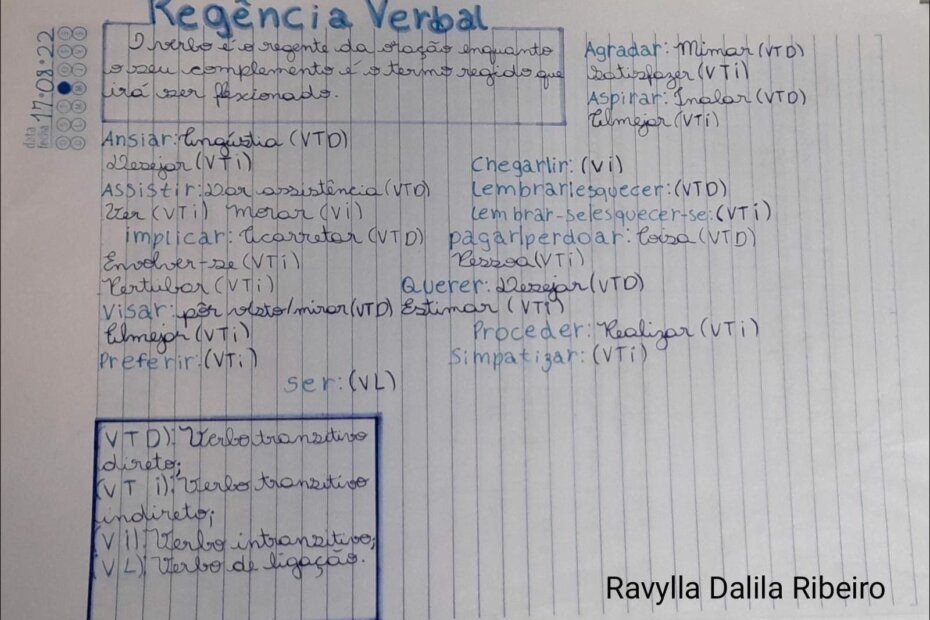 Regência Verbal
data
fecha 17.08.22
O verbo é o regente da oração enquanto
o seu complemento é o termo regido que
irá ser flexionado.
Agradar: Mimar (VTD)
Satisfazer (VTi)
Aspirar: Inalar (VTD)
Almejar (VTi)
Ansiar: Angústia (VTD)
Desejar (VTi)
Assistir: Dar assistência (VTD)
Ver (VTi) Morar (Vi)
implicar: Acarretar (VTD)
Envolver-se (VTi)
Pertubar (VTi)
Visar: pôr visto/mirar (VTD)
Almejar (VTi)
Preferir: (VTi)
Chegar/ir: (Vi)
Lembrar/esquecer: (VTD)
Lembrar-se/esquecer-se: (VTi)
pagar/perdoar: Coisa (VTD)
Pessoa (VTi)
Querer: Desejar (VTD)
Estimar (VTi)
Proceder: Realizar (VTi)
Simpatizar: (VTi)
ser: (VL)
(VTD): Verbo transitivo
direto;
(VTi): Verbo transitivo
indireto;
(Vi): Verbo intransitivo;
(VL): Verbo de ligação.
Ravylla Dalila Ribeiro